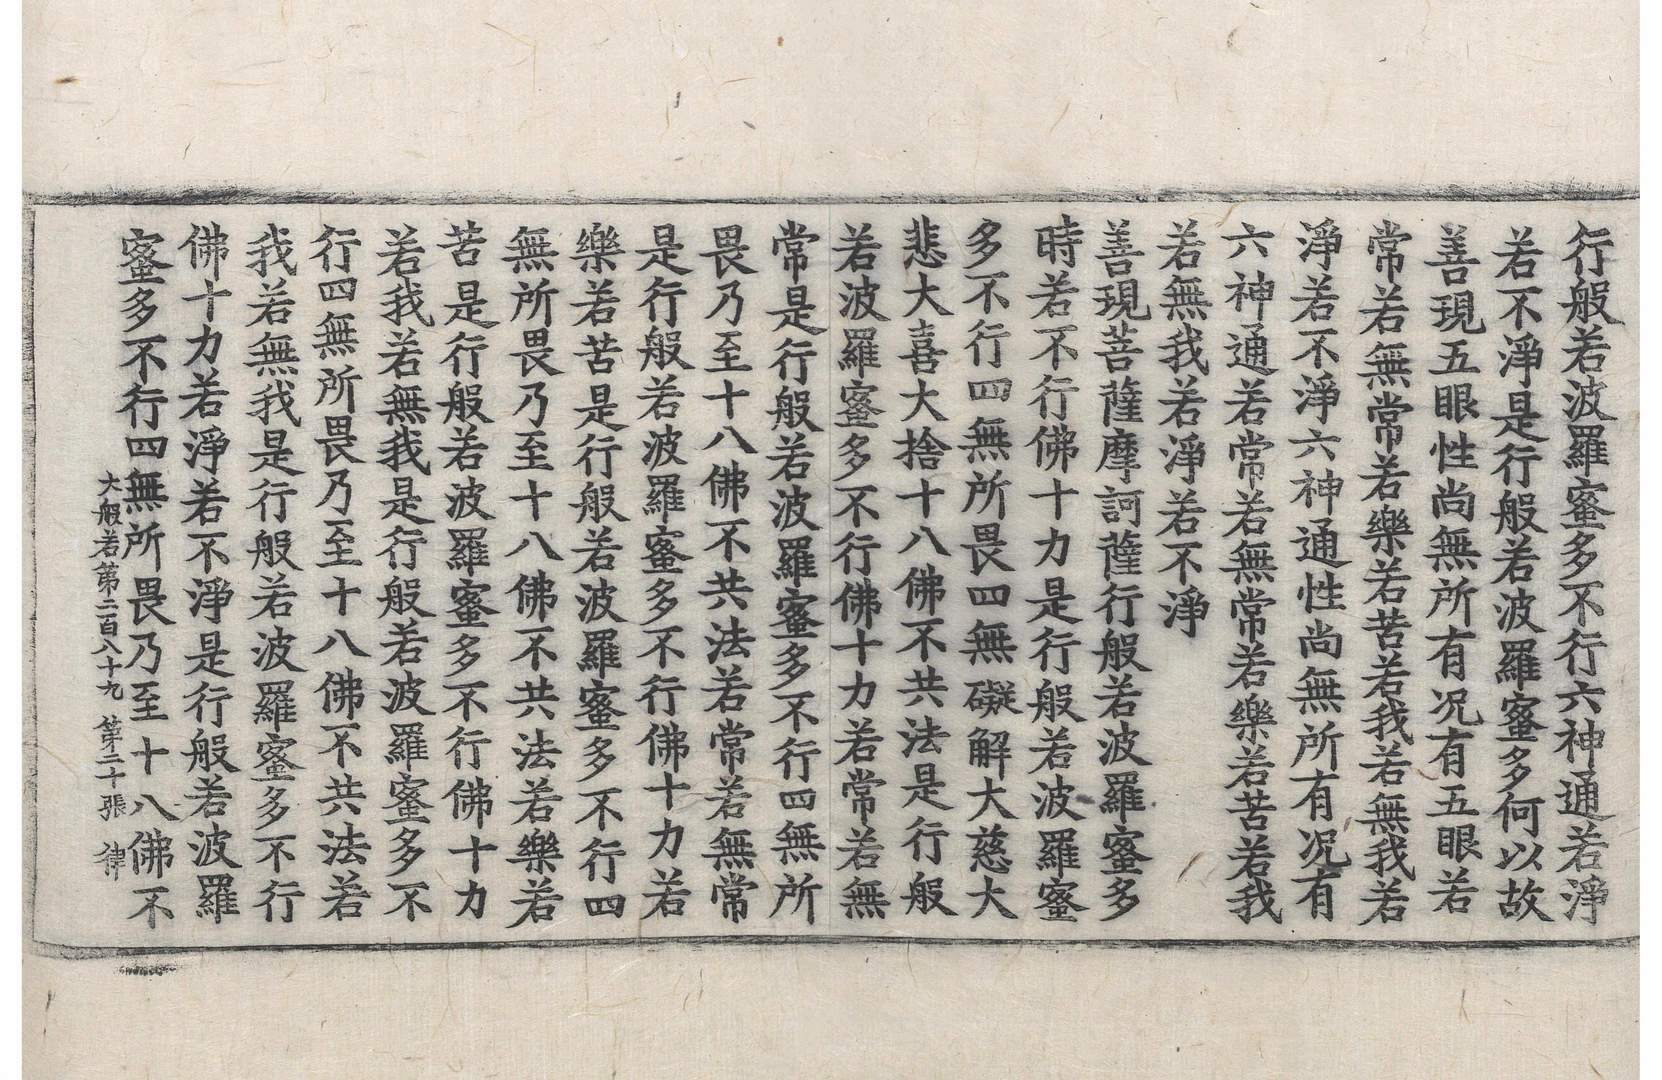 行般若波羅蜜多不行六神通若淨
若不淨是行般若波羅蜜多何以故
善現五眼性尚無所有况有五眼若
常若無常若樂若苦若我若無我若
淨若不淨六神通性尚無所有况有
六神通若常若無常若樂若苦若我
若無我若淨若不淨
善現菩薩摩訶薩行般若波羅蜜多
時若不行佛十力是行般若波羅蜜
多不行四無所畏四無礙解大慈大
悲大喜大捨十八佛不共法是行般
若波羅蜜多不行佛十力若常若無
常是行般若波羅蜜多不行四無所
畏乃至十八佛不共法若常若無常
是行般若波羅蜜多不行佛十力若
樂若苦是行般若波羅蜜多不行四
無所畏乃至十八佛不共法若樂若
苦是行般若波羅蜜多不行佛十力
若我若無我是行般若波羅蜜多不
行四無所畏乃至十八佛不共法若
我若無我是行般若波羅蜜多不行
佛十力若淨若不淨是行般若波羅
蜜多不行四無所畏乃至十八佛不
大般若第二百八十九 第二十張 律